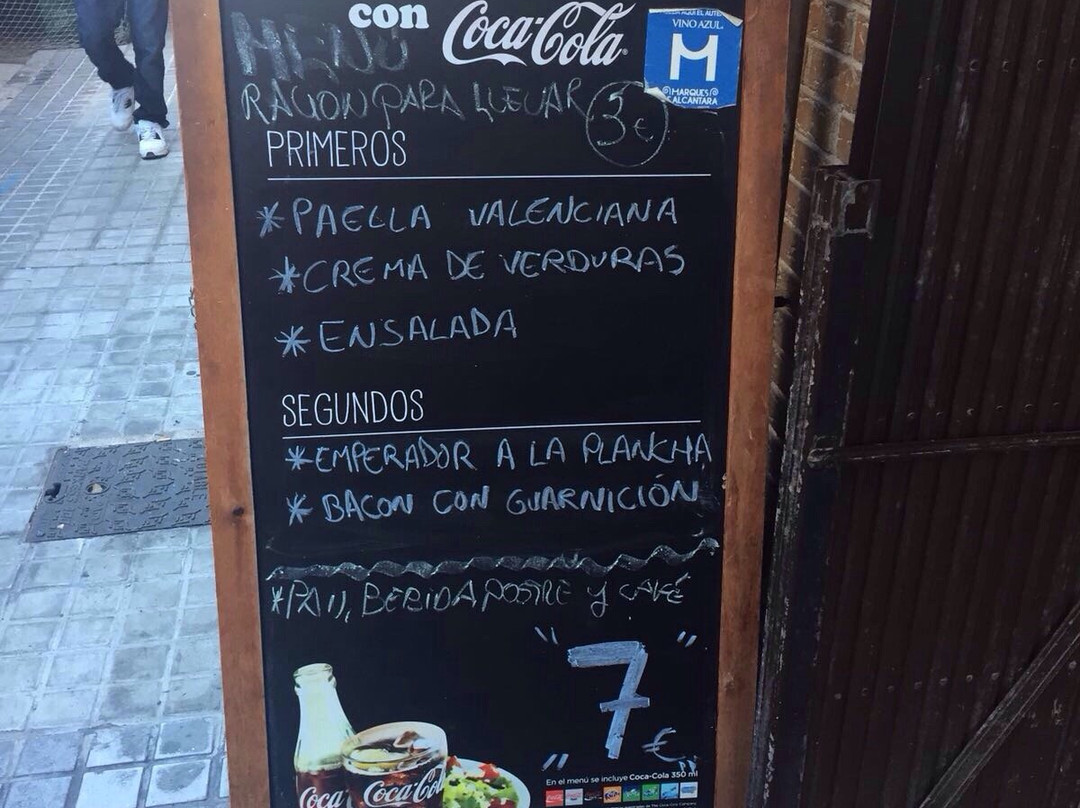 con Coca-Cola
MENÚ
VINO AZUL
M
MARQUES
DE ALCANTARA
RACION PARA LLEVAR 3€
PRIMEROS
*PAELLA VALENCIANA
*CREMA DE VERDURAS
*ENSALADA
SEGUNDOS
*EMPERADOR A LA PLANCHA
*BACON CON GUARNICIÓN
*PAN, BEBIDA POSTRE y CAFÉ
"7"
€
En el menú se incluye Coca-Cola 350 ml
Coca
Coca-Cola